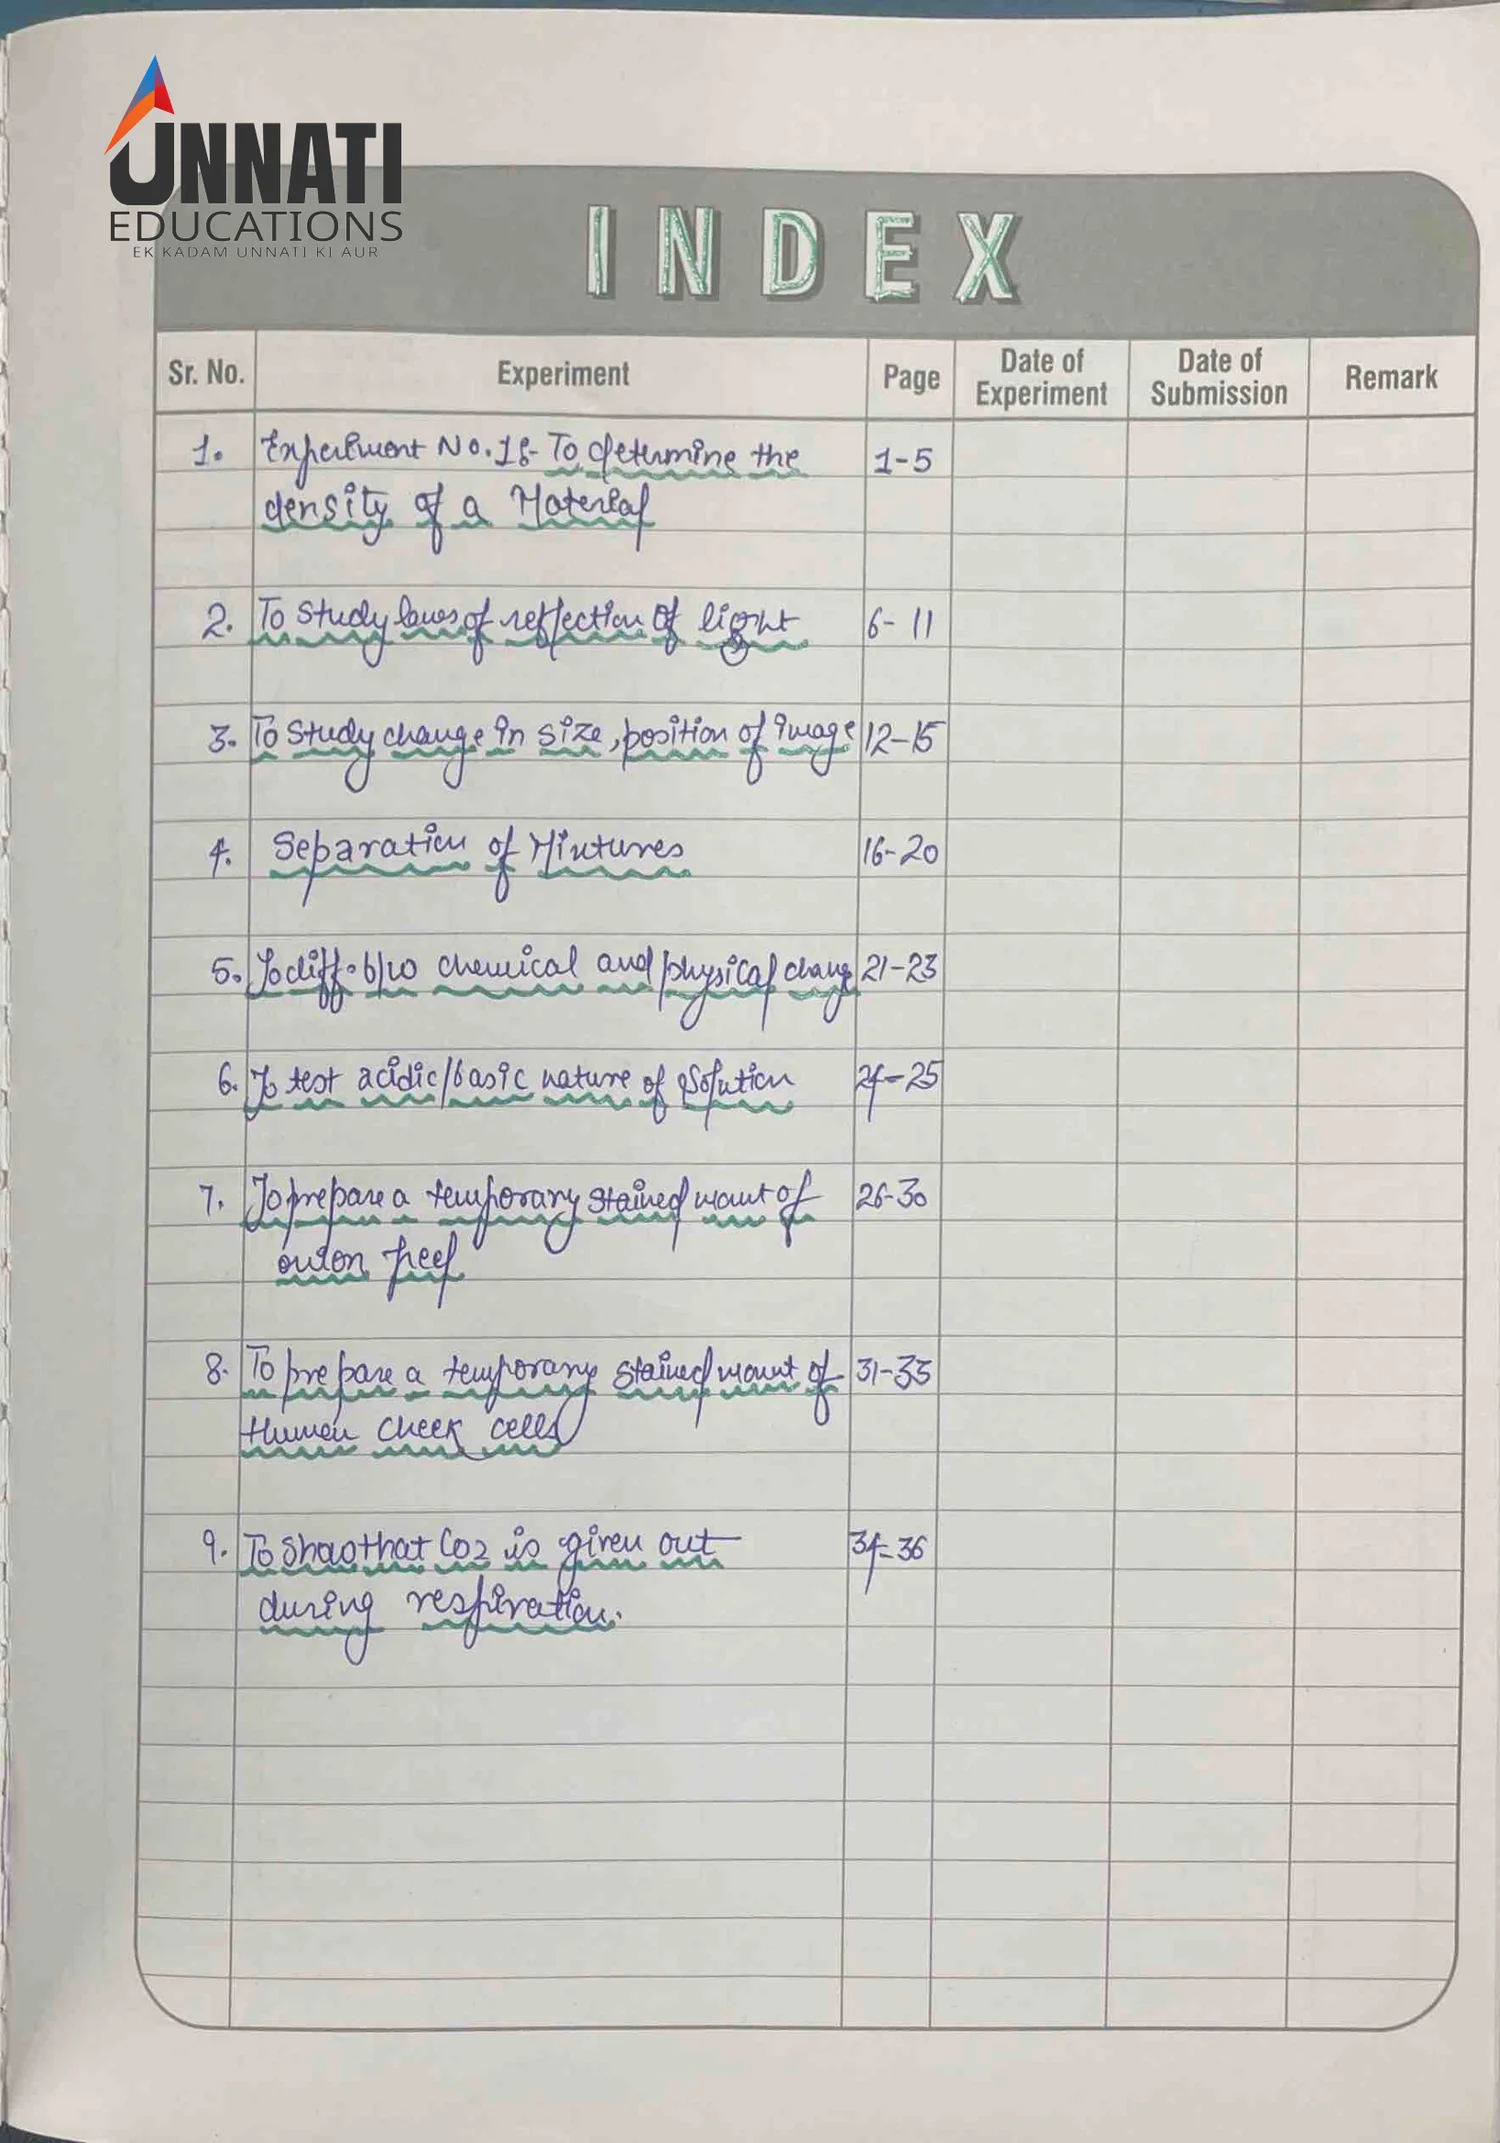 UNNATI
EDUCATIONS
EK KADAM UNNATI KI AUR
INDEX
Sr. No. Experiment Page Date of Experiment Date of Submission Remark
1. Experiment No. 1:- To determine the 1-5
density of a Material
2. To study laws of reflection of light 6-11
3. To study change in size, position of image 12-15
4. Separation of Mixtures 16-20
5. To diff. b/w chemical and physical change 21-23
6. To test acidic/basic nature of solution 24-25
7. To prepare a temporary stained mount of 26-30
onion peel
8. To prepare a temporary stained mount of 31-33
Human cheek cells
9. To show that CO2 is given out 34-36
during respiration.